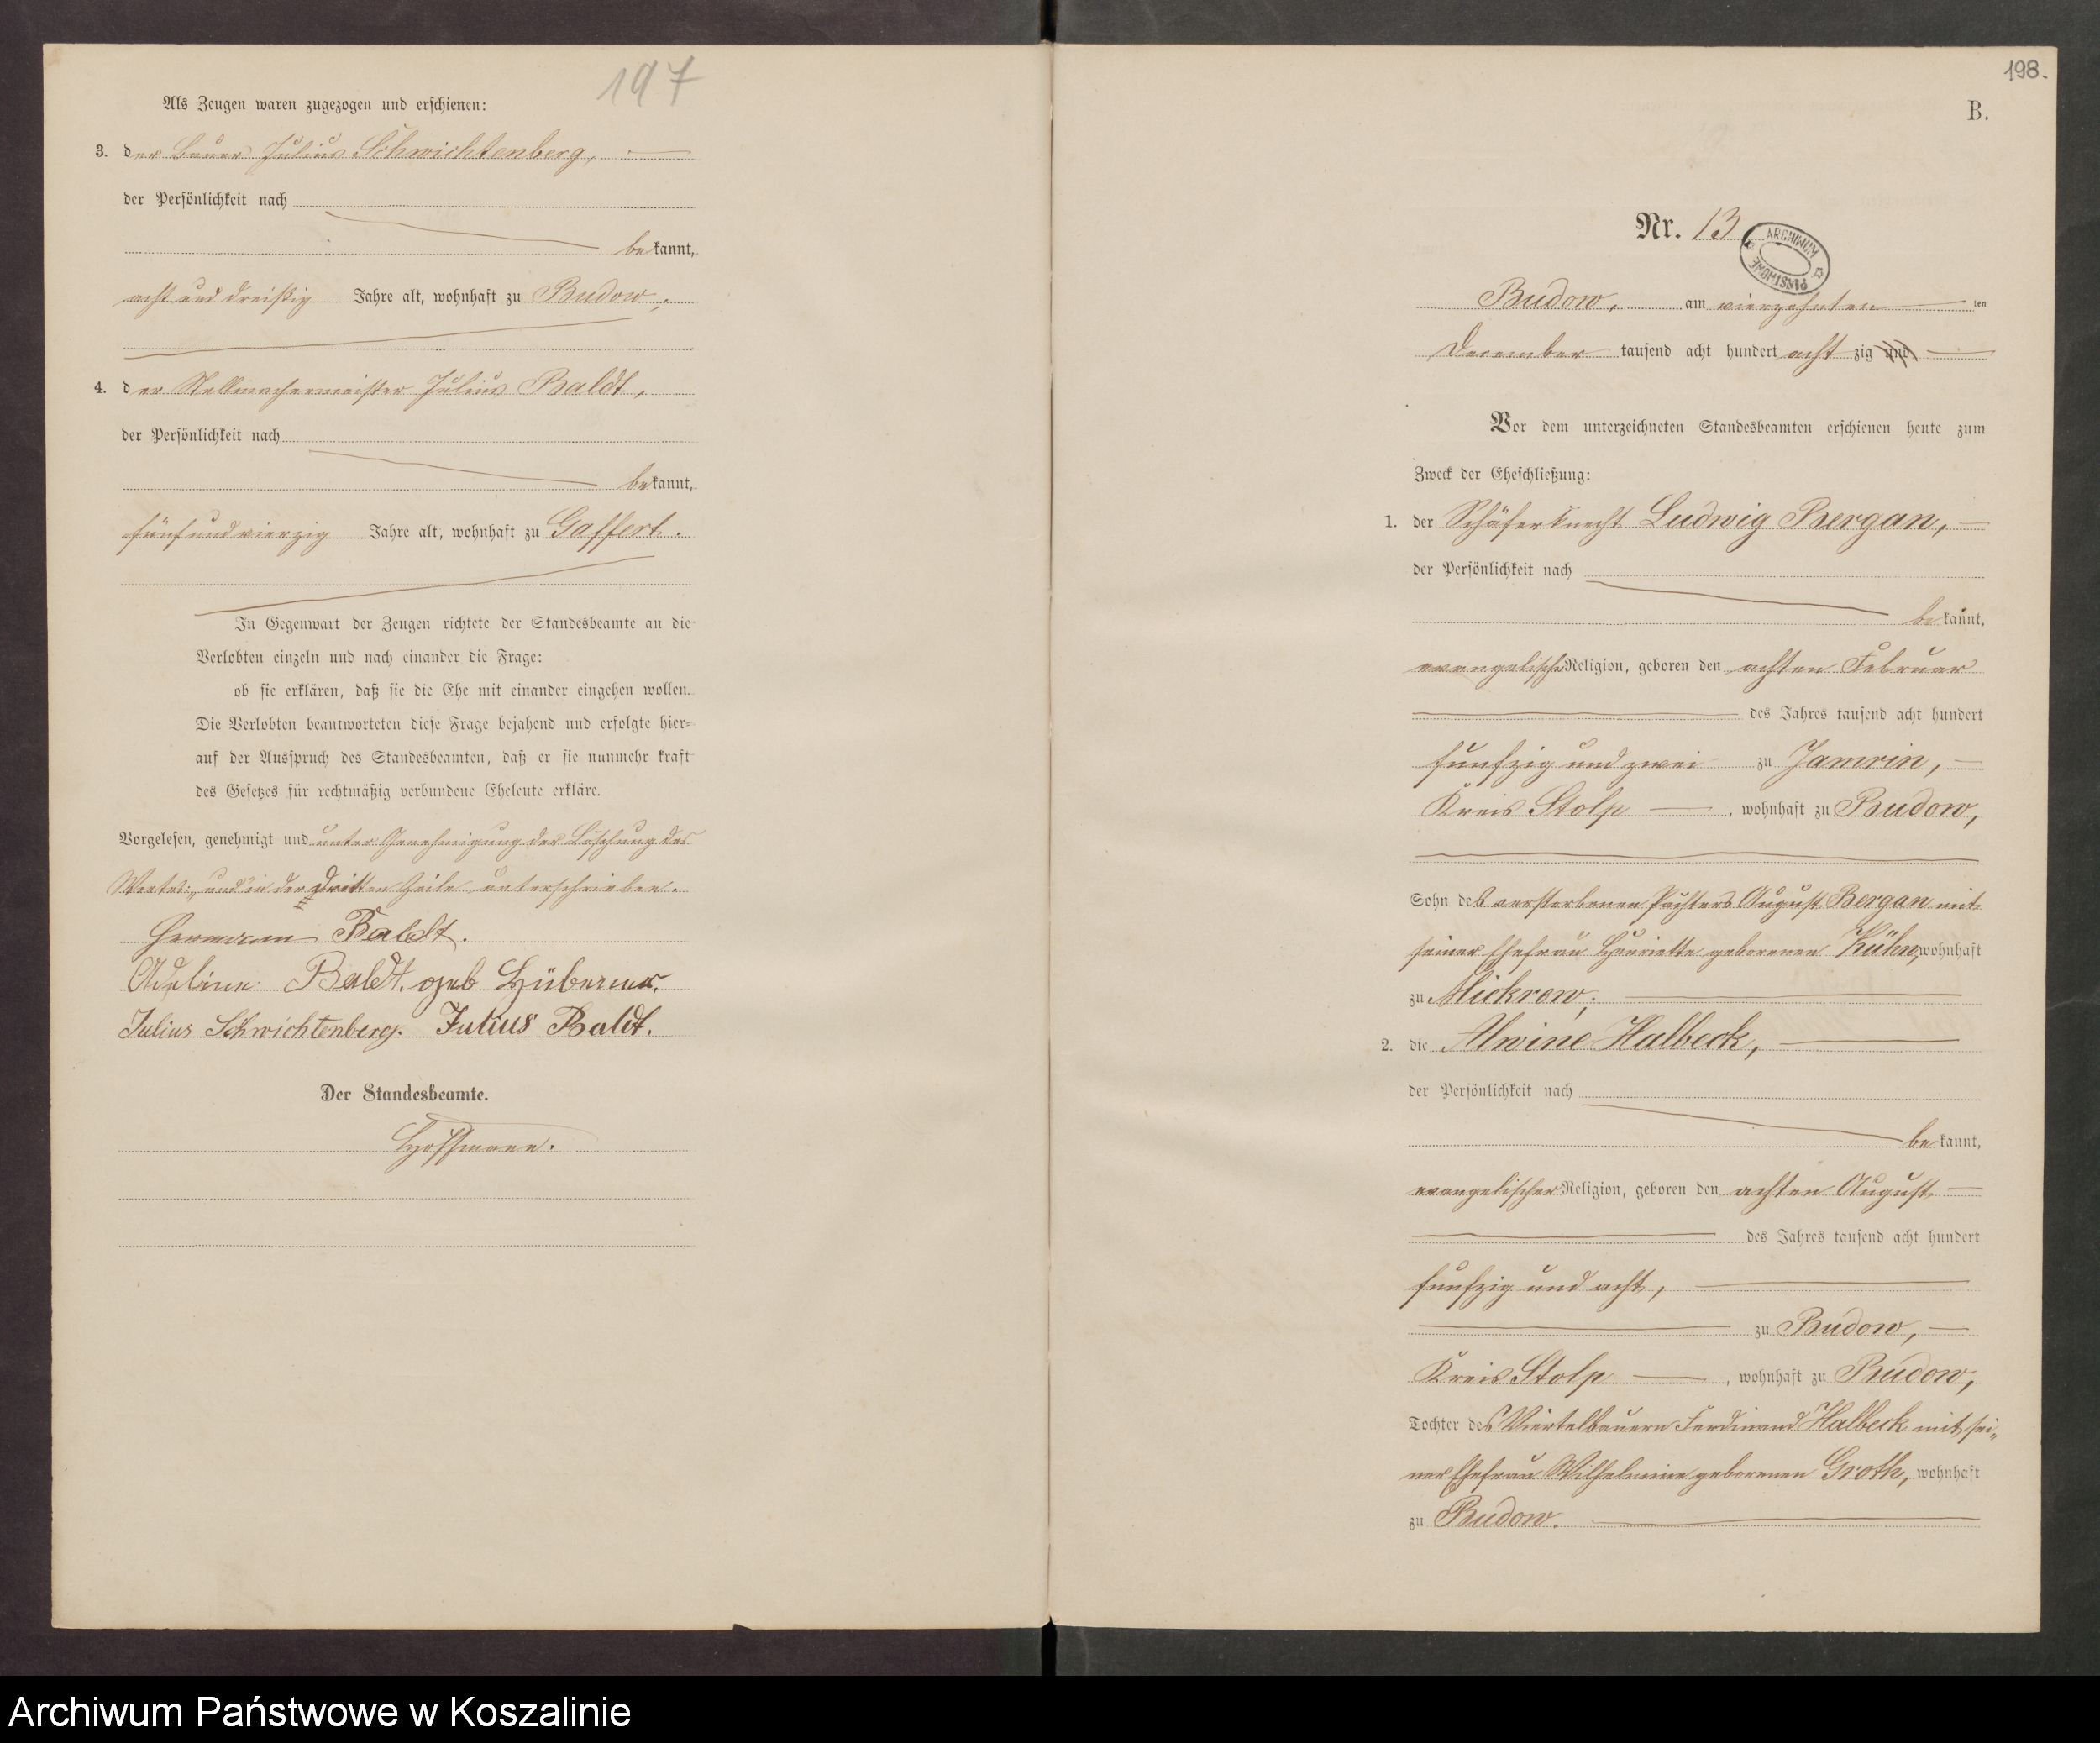 197
Als Zeugen waren zugezogen und erschienen:
3. der Bauer Julius Schwichtenberg,
der Persönlichkeit nach
bekannt,
acht und dreißig Jahre alt, wohnhaft zu Budow,
4. der Stellmachermeister Julius Baldt,
der Persönlichkeit nach
bekannt,
fünf und vierzig Jahre alt, wohnhaft zu Gaffert.
In Gegenwart der Zeugen richtete der Standesbeamte an die
Verlobten einzeln und nach einander die Frage:
ob sie erklären, daß sie die Ehe mit einander eingehen wollen.
Die Verlobten beantworteten diese Frage bejahend und erfolgte hier-
auf der Ausspruch des Standesbeamten, daß er sie nunmehr kraft
des Gesetzes für rechtmäßig verbundene Eheleute erkläre.
Vorgelesen, genehmigt und unter Genehmigung der Löschung des
Wortes: „und" in der dritten Zeile unterschrieben.
Hermann Baldt.
Adeline Baldt. geb
Julius Schwichtenberg. Julius Baldt.
Der Standesbeamte.
Hoffmann.
198.
B.
Nr. 13
ARCHIWUM PAŃSTWOWE
Budow, am vierzehnten ten
December tausend acht hundert acht zig und
Vor dem unterzeichneten Standesbeamten erschienen heute zum
Zweck der Eheschließung:
1. der Schäferknecht Ludwig Bergan,
der Persönlichkeit nach
bekannt,
evangelischer Religion, geboren den achten Februar
des Jahres tausend acht hundert
funfzig und zwei zu Jamrin,
Kreis Stolp, wohnhaft zu Budow,
Sohn des verstorbenen Pächters August Bergan mit
seiner Ehefrau Henriette geborenen Kühn, wohnhaft
zu Mickrow;
2. die Alwine Halbeck,
der Persönlichkeit nach
bekannt,
evangelischer Religion, geboren den achten August
des Jahres tausend acht hundert
funfzig und acht,
zu Budow,
Kreis Stolp, wohnhaft zu Budow,
Tochter des Viertelbauern Ferdinand Halbeck mit sei-
ner Ehefrau Wilhelmine geborenen Groth, wohnhaft
zu Budow.
Archiwum Państwowe w Koszalinie